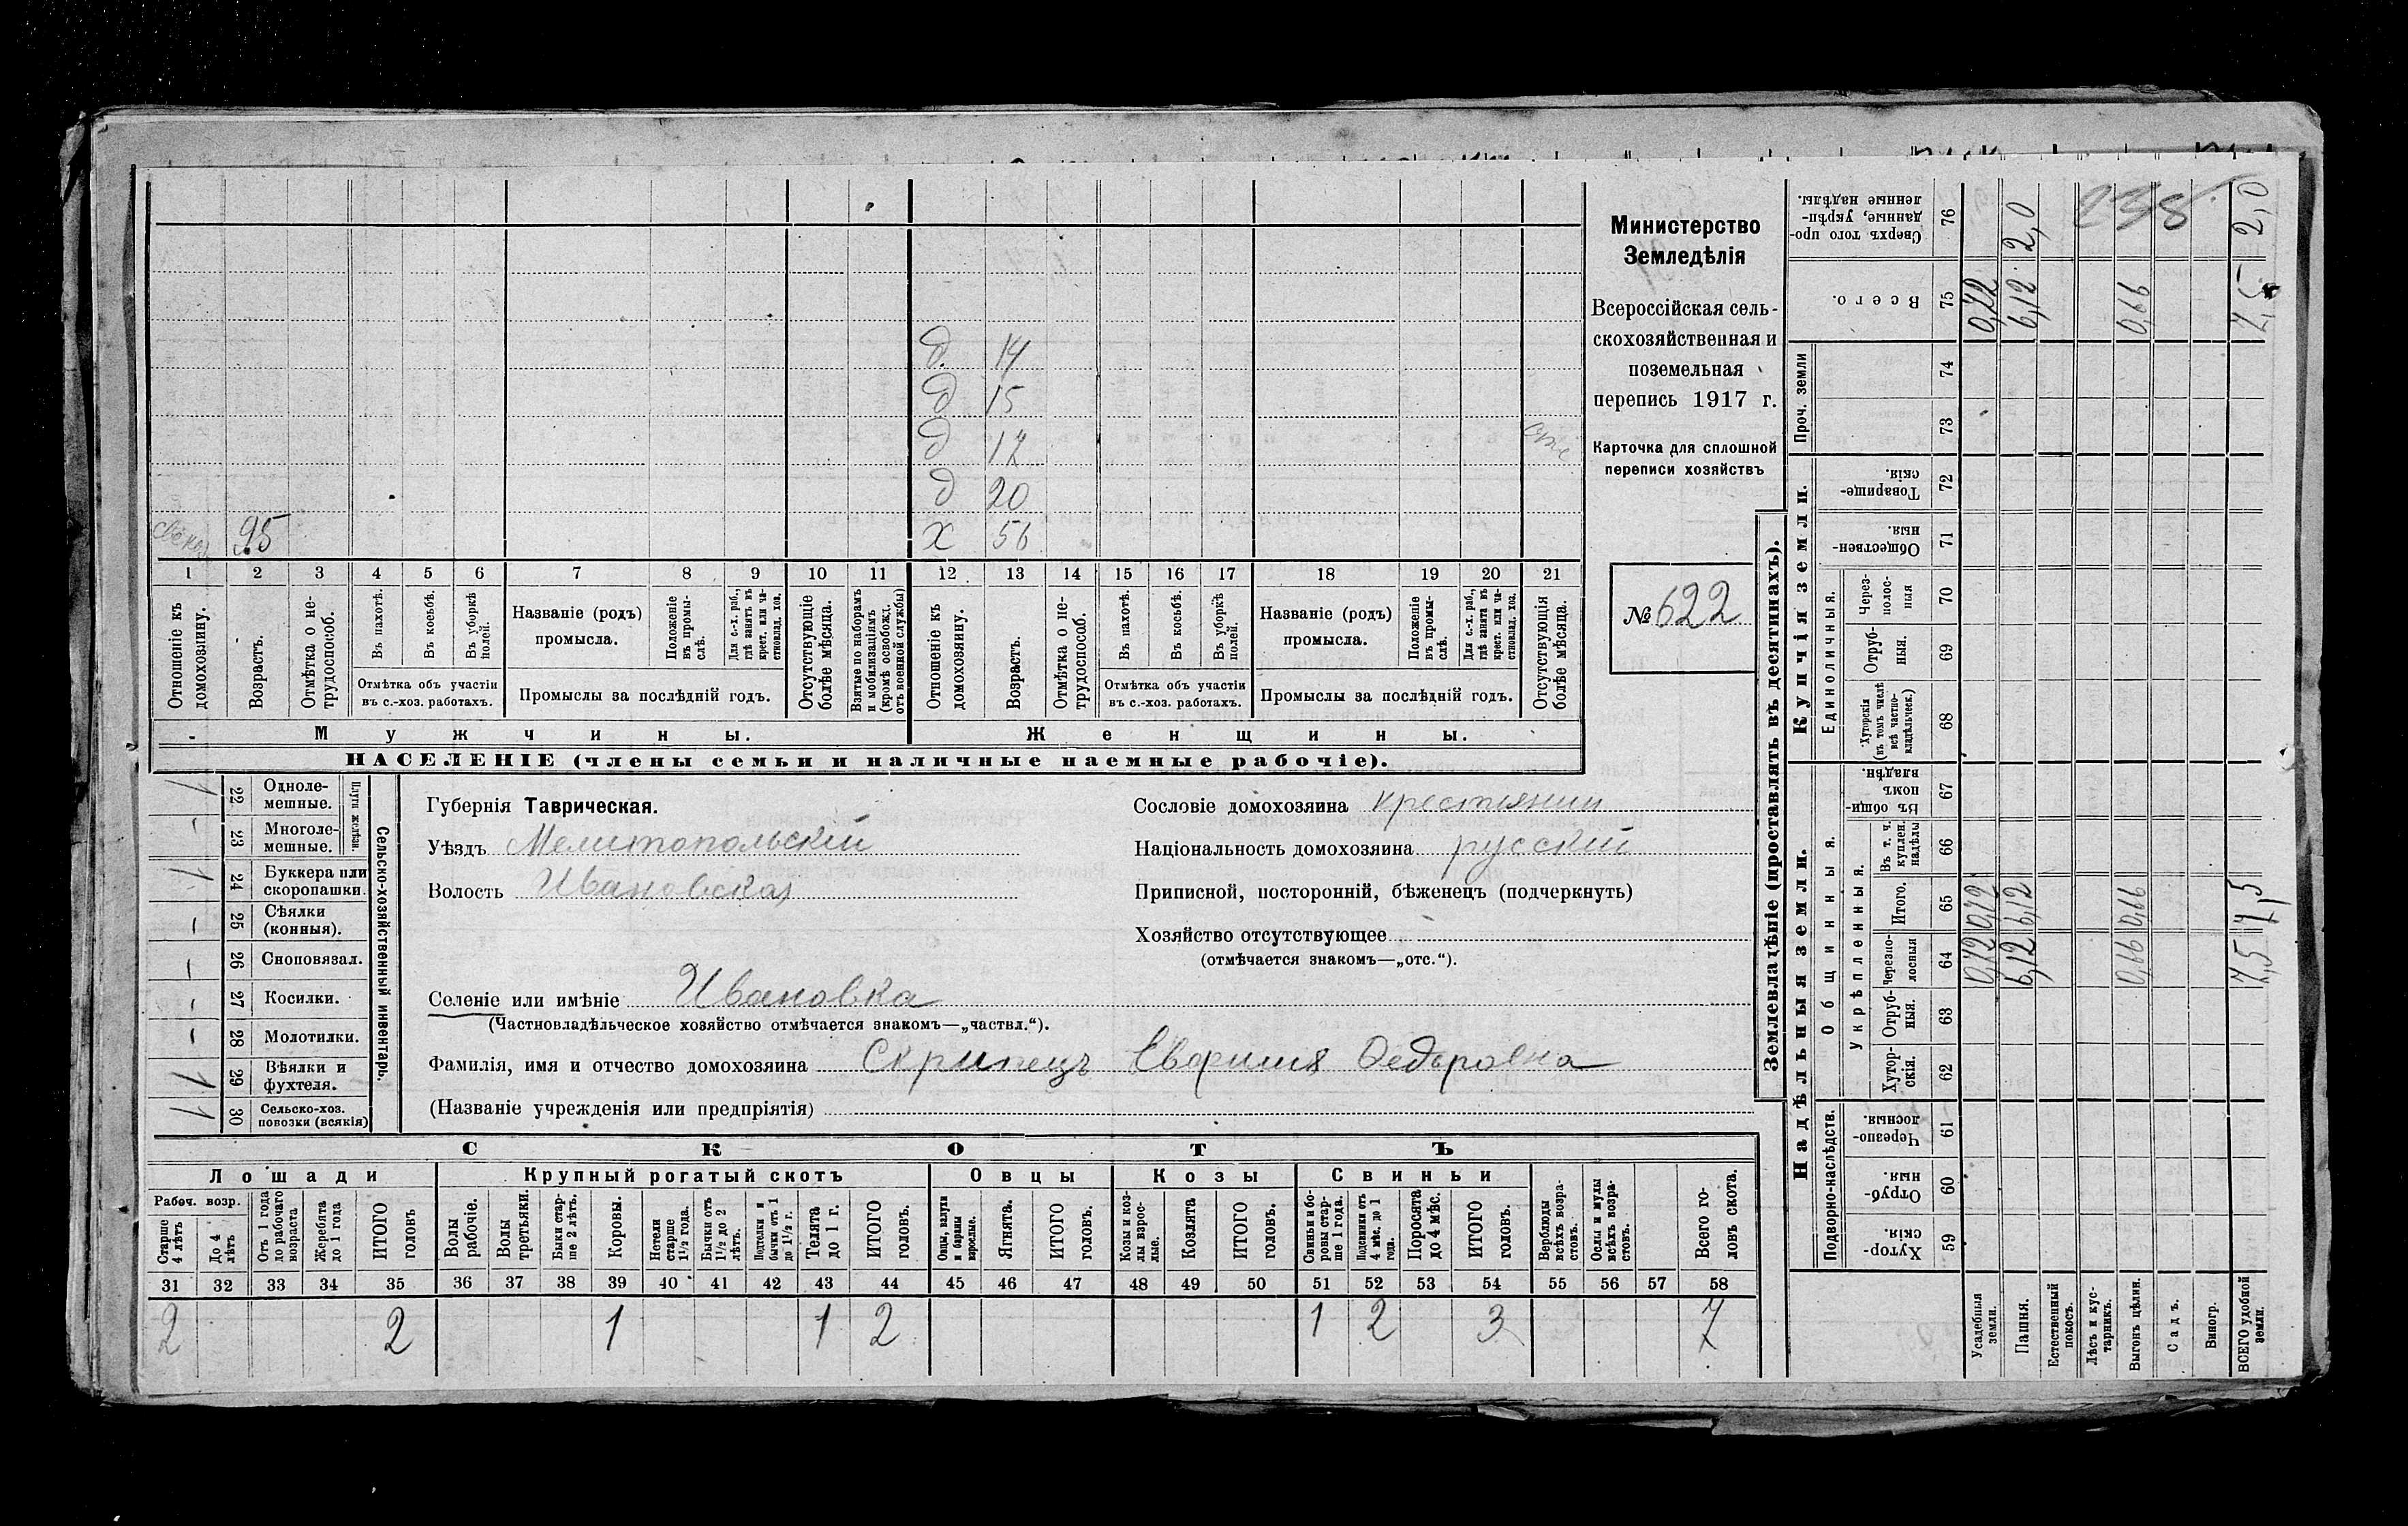 д. 14
д 15
д 17
д 20
свекор 95 х 56
1 2 3 4 5 6 7 8 9 10 11 12 13 14 15 16 17 18 19 20 21
Отношеніе къ домохозяину.
Возрастъ.
Отмѣтка о нетрудоспособ.
Въ пахотѣ.
Въ косьбѣ.
Въ уборкѣ полей.
Отмѣтка объ участіи въ с.-хоз. работахъ.
Названіе (родъ) промысла.
Положеніе въ промыслѣ.
Для с.-х. раб., гдѣ занятъ въ крест. или частновлад. хоз.
Промыслы за послѣдній годъ.
Отсутствующіе болѣе мѣсяца.
Взятые по в наборамъ и мобилизаціямъ (кромѣ освобожд. отъ военной службы)
Отношеніе къ домохозяину.
Возрастъ.
Отмѣтка о нетрудоспособ.
Въ пахотѣ.
Въ косьбѣ.
Въ уборкѣ полей.
Отмѣтка объ участіи въ с.-хоз. работахъ.
Названіе (родъ) промысла.
Положеніе въ промыслѣ.
Для с.-х. раб., гдѣ занята въ крест. или частновлад. хоз.
Промыслы за послѣдній годъ.
Отсутствующія болѣе мѣсяца.
Мужчины. Женщины.
НАСЕЛЕНІЕ (члены семьи и наличные наемные рабочіе).
Министерство
Земледѣлія
Всероссійская сель-
скохозяйственная и
поземельная
перепись 1917 г.
Карточка для сплошной
переписи хозяйствъ
№ 622
Сельско-хозяйственный инвентарь.
Плуги желѣзн.
1 22 Однолемешные.
- 23 Многолемешные.
1 24 Буккера или скоропашки.
- 25 Сѣялки (конныя).
- 26 Сноповязал.
- 27 Косилки.
- 28 Молотилки.
1 29 Вѣялки и фухтеля.
1 30 Сельско-хоз. повозки (всякія)
Губернія Таврическая.
Уѣздъ Мелитопольскій
Волость Ивановская
Сословіе домохозяина крестьянин
Національность домохозяина русскій
Приписной, посторонній, бѣженецъ (подчеркнуть)
Хозяйство отсутствующее
(отмѣчается знакомъ—„отс.“).
Селеніе или имѣніе Ивановка
(Частновладѣльческое хозяйство отмѣчается знакомъ—„частвл.“).
Фамилія, имя и отчество домохозяина Скрипецъ Федоровна
(Названіе учрежденія или предпріятія)
СКОТЪ
Лошади Крупный рогатый скотъ Овцы Козы Свиньи
Рабоч. возр.
Старше 4 лѣтъ
До 4 лѣтъ
Отъ 1 года до рабочаго возраста
Жеребята до 1 года
ИТОГО головъ
Волы рабочіе.
Волы третьяки.
Быки старше 2 лѣтъ.
Коровы.
Нетели старше 1½ года.
Бычки отъ 1½ до 2 лѣтъ.
Подтелки и бычки отъ 1 до 1½ г.
Телята до 1 г.
ИТОГО головъ.
Овцы, валухи и бараны взрослые.
Ягнята.
ИТОГО головъ.
Козы и козлы взрослые.
Козлята
ИТОГО головъ.
Свиньи и боровы старше 1 года.
Подсвинки отъ 4 мѣс. до 1 года.
Поросята до 4 мѣс.
ИТОГО головъ.
Верблюды всѣхъ возрастовъ.
Ослы и мулы всѣхъ возрастовъ.
Всего головъ скота.
31 32 33 34 35 36 37 38 39 40 41 42 43 44 45 46 47 48 49 50 51 52 53 54 55 56 57 58
2 2 1 1 2 1 2 3 7
Землевладѣніе (проставлять въ десятинахъ).
Надѣльныя земли. Купчія земли. Проч. земли
Подворно-наслѣдств. Общинныя. Укрѣпленныя. Единоличныя.
Хуторскія. 59
Отрубныя 60
Черезполосныя. 61
Хуторскія. 62
Отрубныя. 63
Черезполосныя 64
Итого. 65
Въ т. ч. куплен. надѣлы 66
Въ общинномъ владѣн. 67
Хуторскія (въ томъ числѣ всѣ частновладѣльческ.) 68
Отрубныя. 69
Черезполосныя 70
Общественныя. 71
Товарищескія. 72
73
74
Всего. 75
Сверхъ того проданные, укрѣпленные надѣлы. 76
Усадебныя земли. 0,72 0,72 0,72
Пашня. 6,12 6,12 6,12 2,0
Естественный покосъ.
Лѣсъ и кустарникъ.
Выгонъ цѣлин. 0,66 0,66 0,66
Садъ.
Виногр.
ВСЕГО удобной земли. 7,5 7,5 7,5 2,0
238